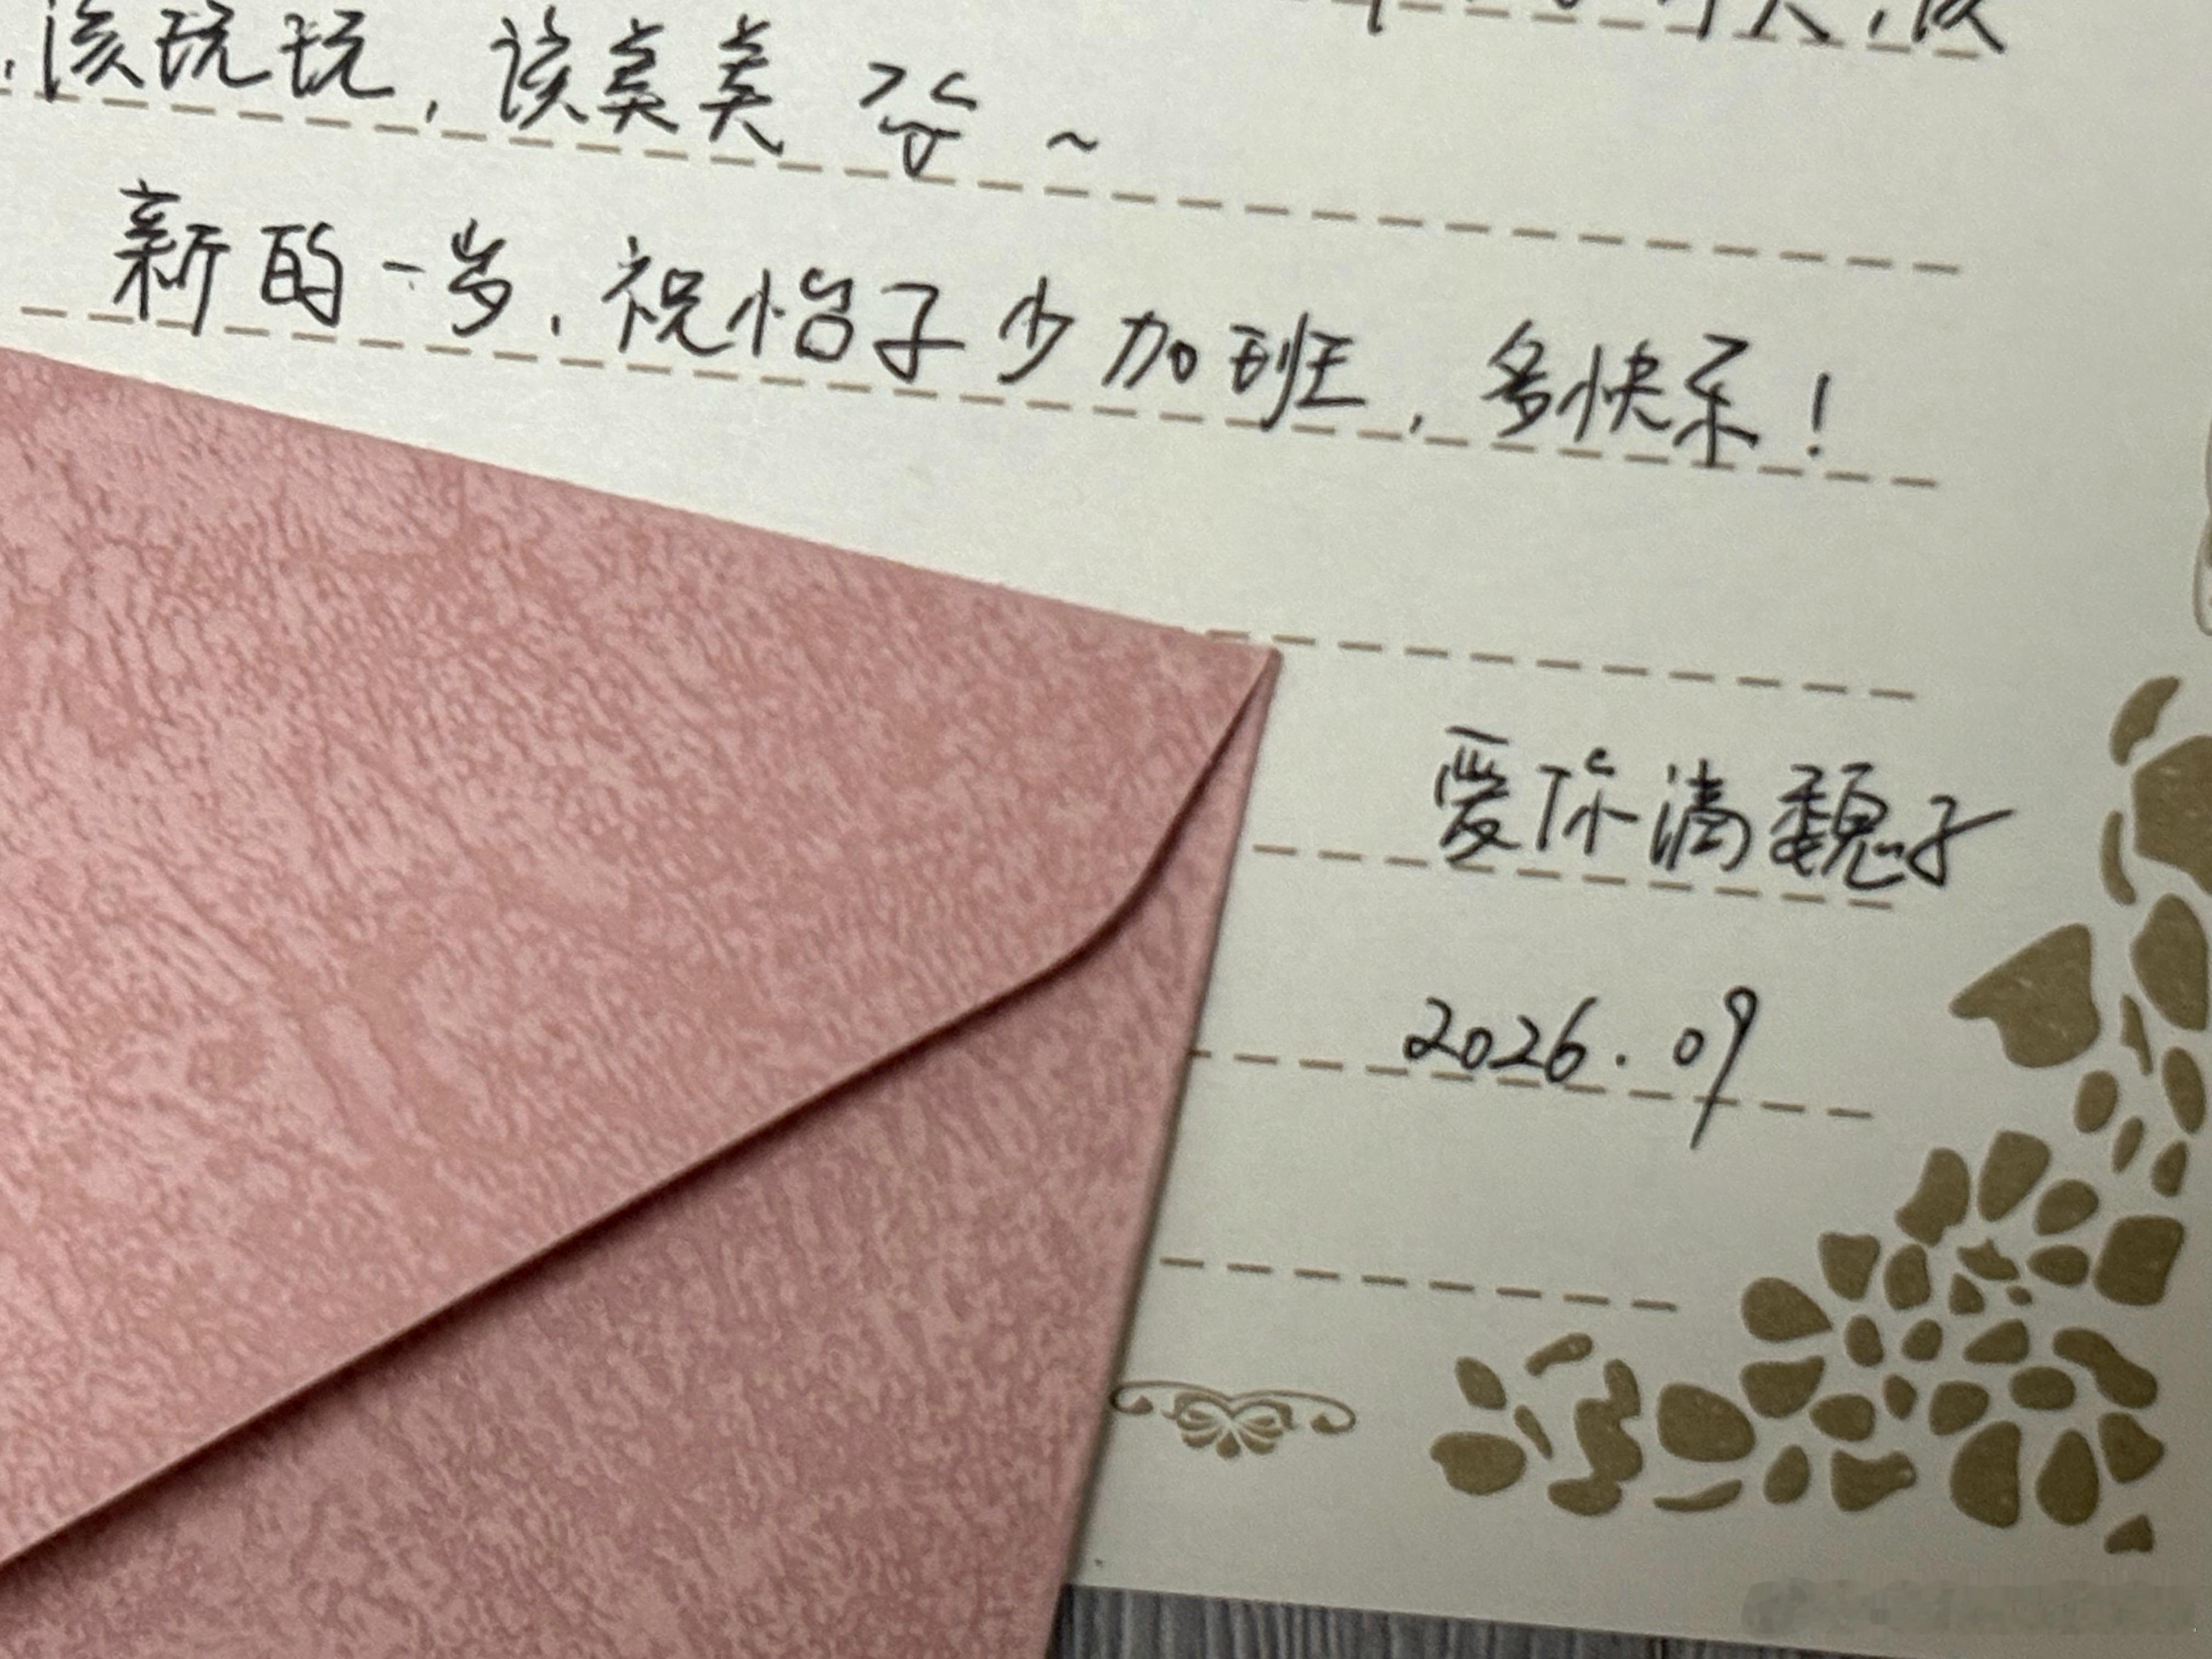 该玩玩，该美美 ～
新的一岁，祝怡子少加班，多快乐！
爱你滴魏子
2026.09